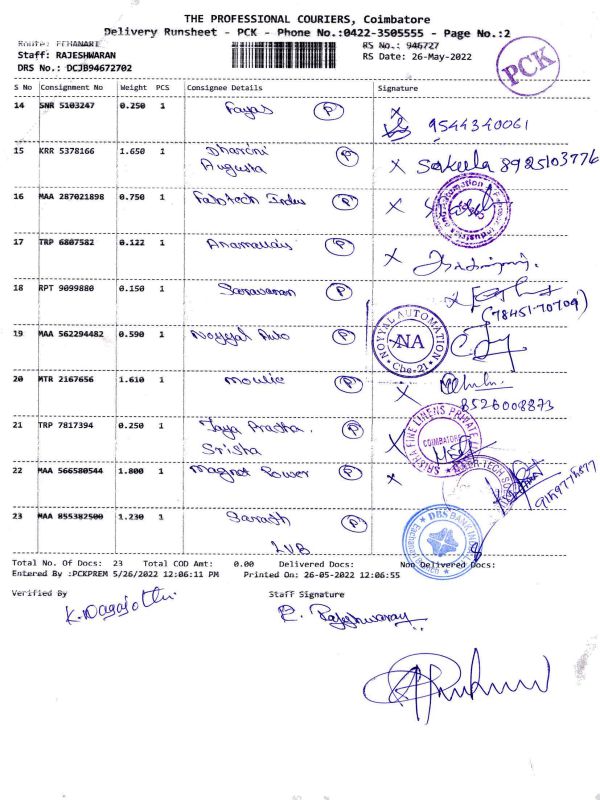 THE PROFESSIONAL COURIERS, Coimbatore
Delivery Runsheet - PCK - Phone No.:0422-3505555 - Page No.:2
Route: PCHANARI
RS No.: 946727
Staff: RAJESHWARAN
RS Date: 26-May-2022
DRS No.: DCJB94672702
PCK
S No Consignment No Weight PCS Consignee Details Signature
14 SNR 5103247 0.250 1 Fayas P
9544340061
15 KRR 5378166 1.650 1 Dharani P
Augusta
Sakeela 8925103776
16 MAA 287021898 0.750 1 Fabtech Indus P
17 TRP 6807582 0.122 1 Anamallais P
18 RPT 9099880 0.150 1 Saravanan P
(78451-70709)
19 MAA 562294482 0.590 1 Noyyal Auto P
NOYYAL AUTOMATION
NA
Cbe-21
20 MTR 2167656 1.610 1 Moulie P
8526008873
21 TRP 7817394 0.250 1 Jaya Prastha. P
Srisha
COIMBATORE
22 MAA 566580544 1.800 1 Magnet Power P
23 MAA 855382500 1.230 1 Sarath P
LVB
DBS BANK INDIA
Total No. Of Docs: 23 Total COD Amt: 0.00 Delivered Docs: Non Delivered Docs:
Entered By :PCKPREM 5/26/2022 12:06:11 PM Printed On: 26-05-2022 12:06:55
Verified By Staff Signature
R. Rajeshwaran